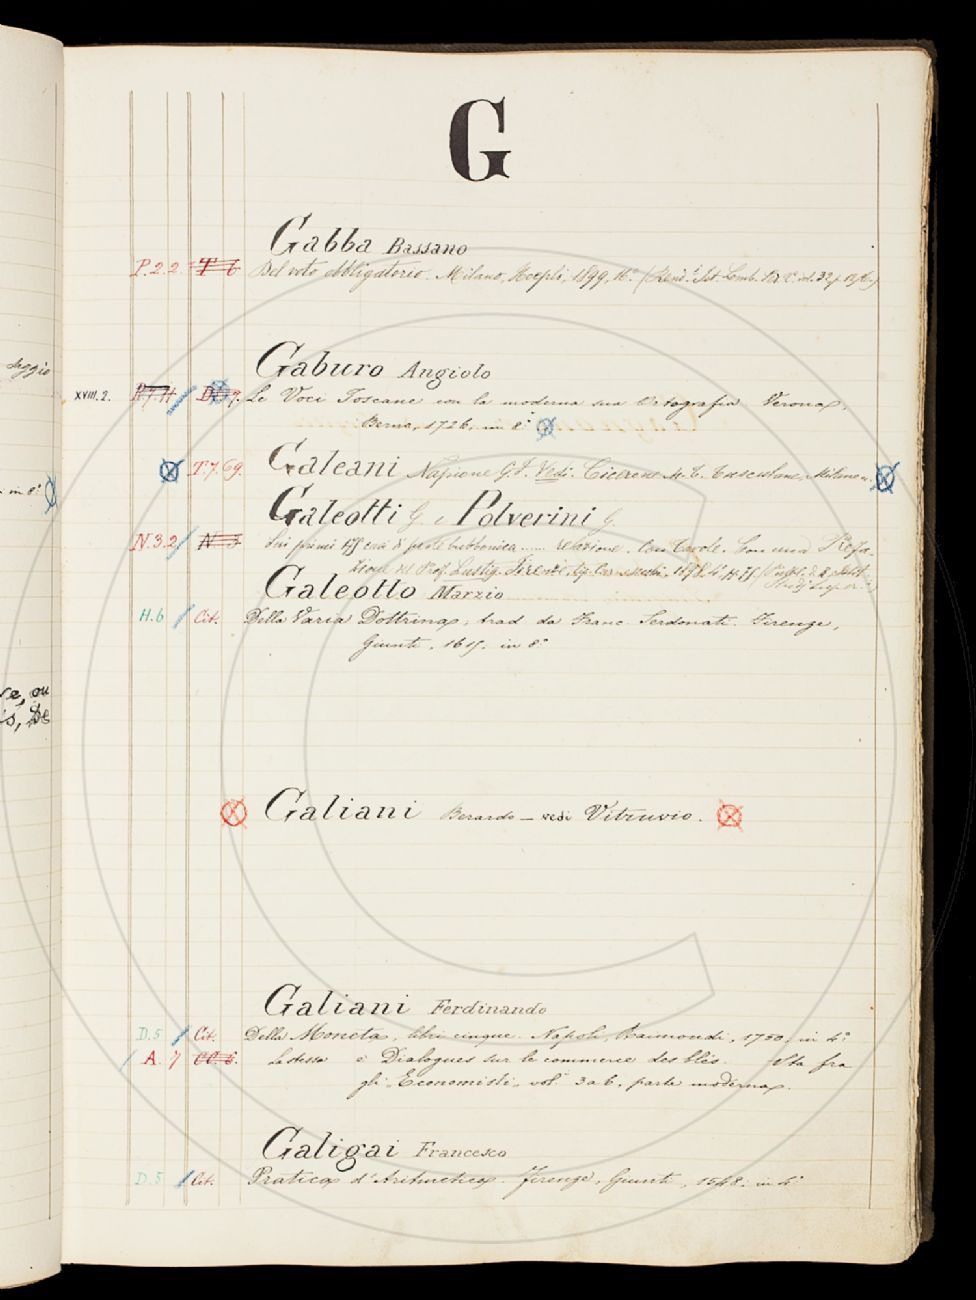 G
Gabba Bassano
P.2.2. T 6 Del voto obbligatorio. Milano, Hoepli, 1899, 16.° (Rend.i Ist. Lomb.
Gaburo Angiolo
XVIII.2. Le Voci Toscane con la moderna sua Ortografia. Verona,
Berno, 1726, in 8.°
Galeani Napione G. F. Vedi. Cicerone M. T. Tusculane, Milano
T.7.69.
Galeotti G. e Polverini G.
N.3.2 Sui primi casi di peste bubbonica ...... relazione. Con tavole. Con una
del Prof. Lustig. Firenze, tip. Carnesecchi,
Galeotto Marzio
H.6 Cit. Della Varia Dottrina, trad. da Franc. Serdonati. Firenze,
Giunti, 1615. in 8.°
Galiani Berardo — vedi Vitruvio.
Galiani Ferdinando
D.5 Cit. Della Moneta, libri cinque. Napoli, Raimondi, 1750, in 4.°
A. 7 La stessa e Dialogues sur le commerce des blés. Sta fra
gli Economisti, vol. 3 a 6, parte moderna.
Galigai Francesco
D.5 Cit. Pratica d'Aritmetica. Firenze, Giunti, 1548. in 4.°